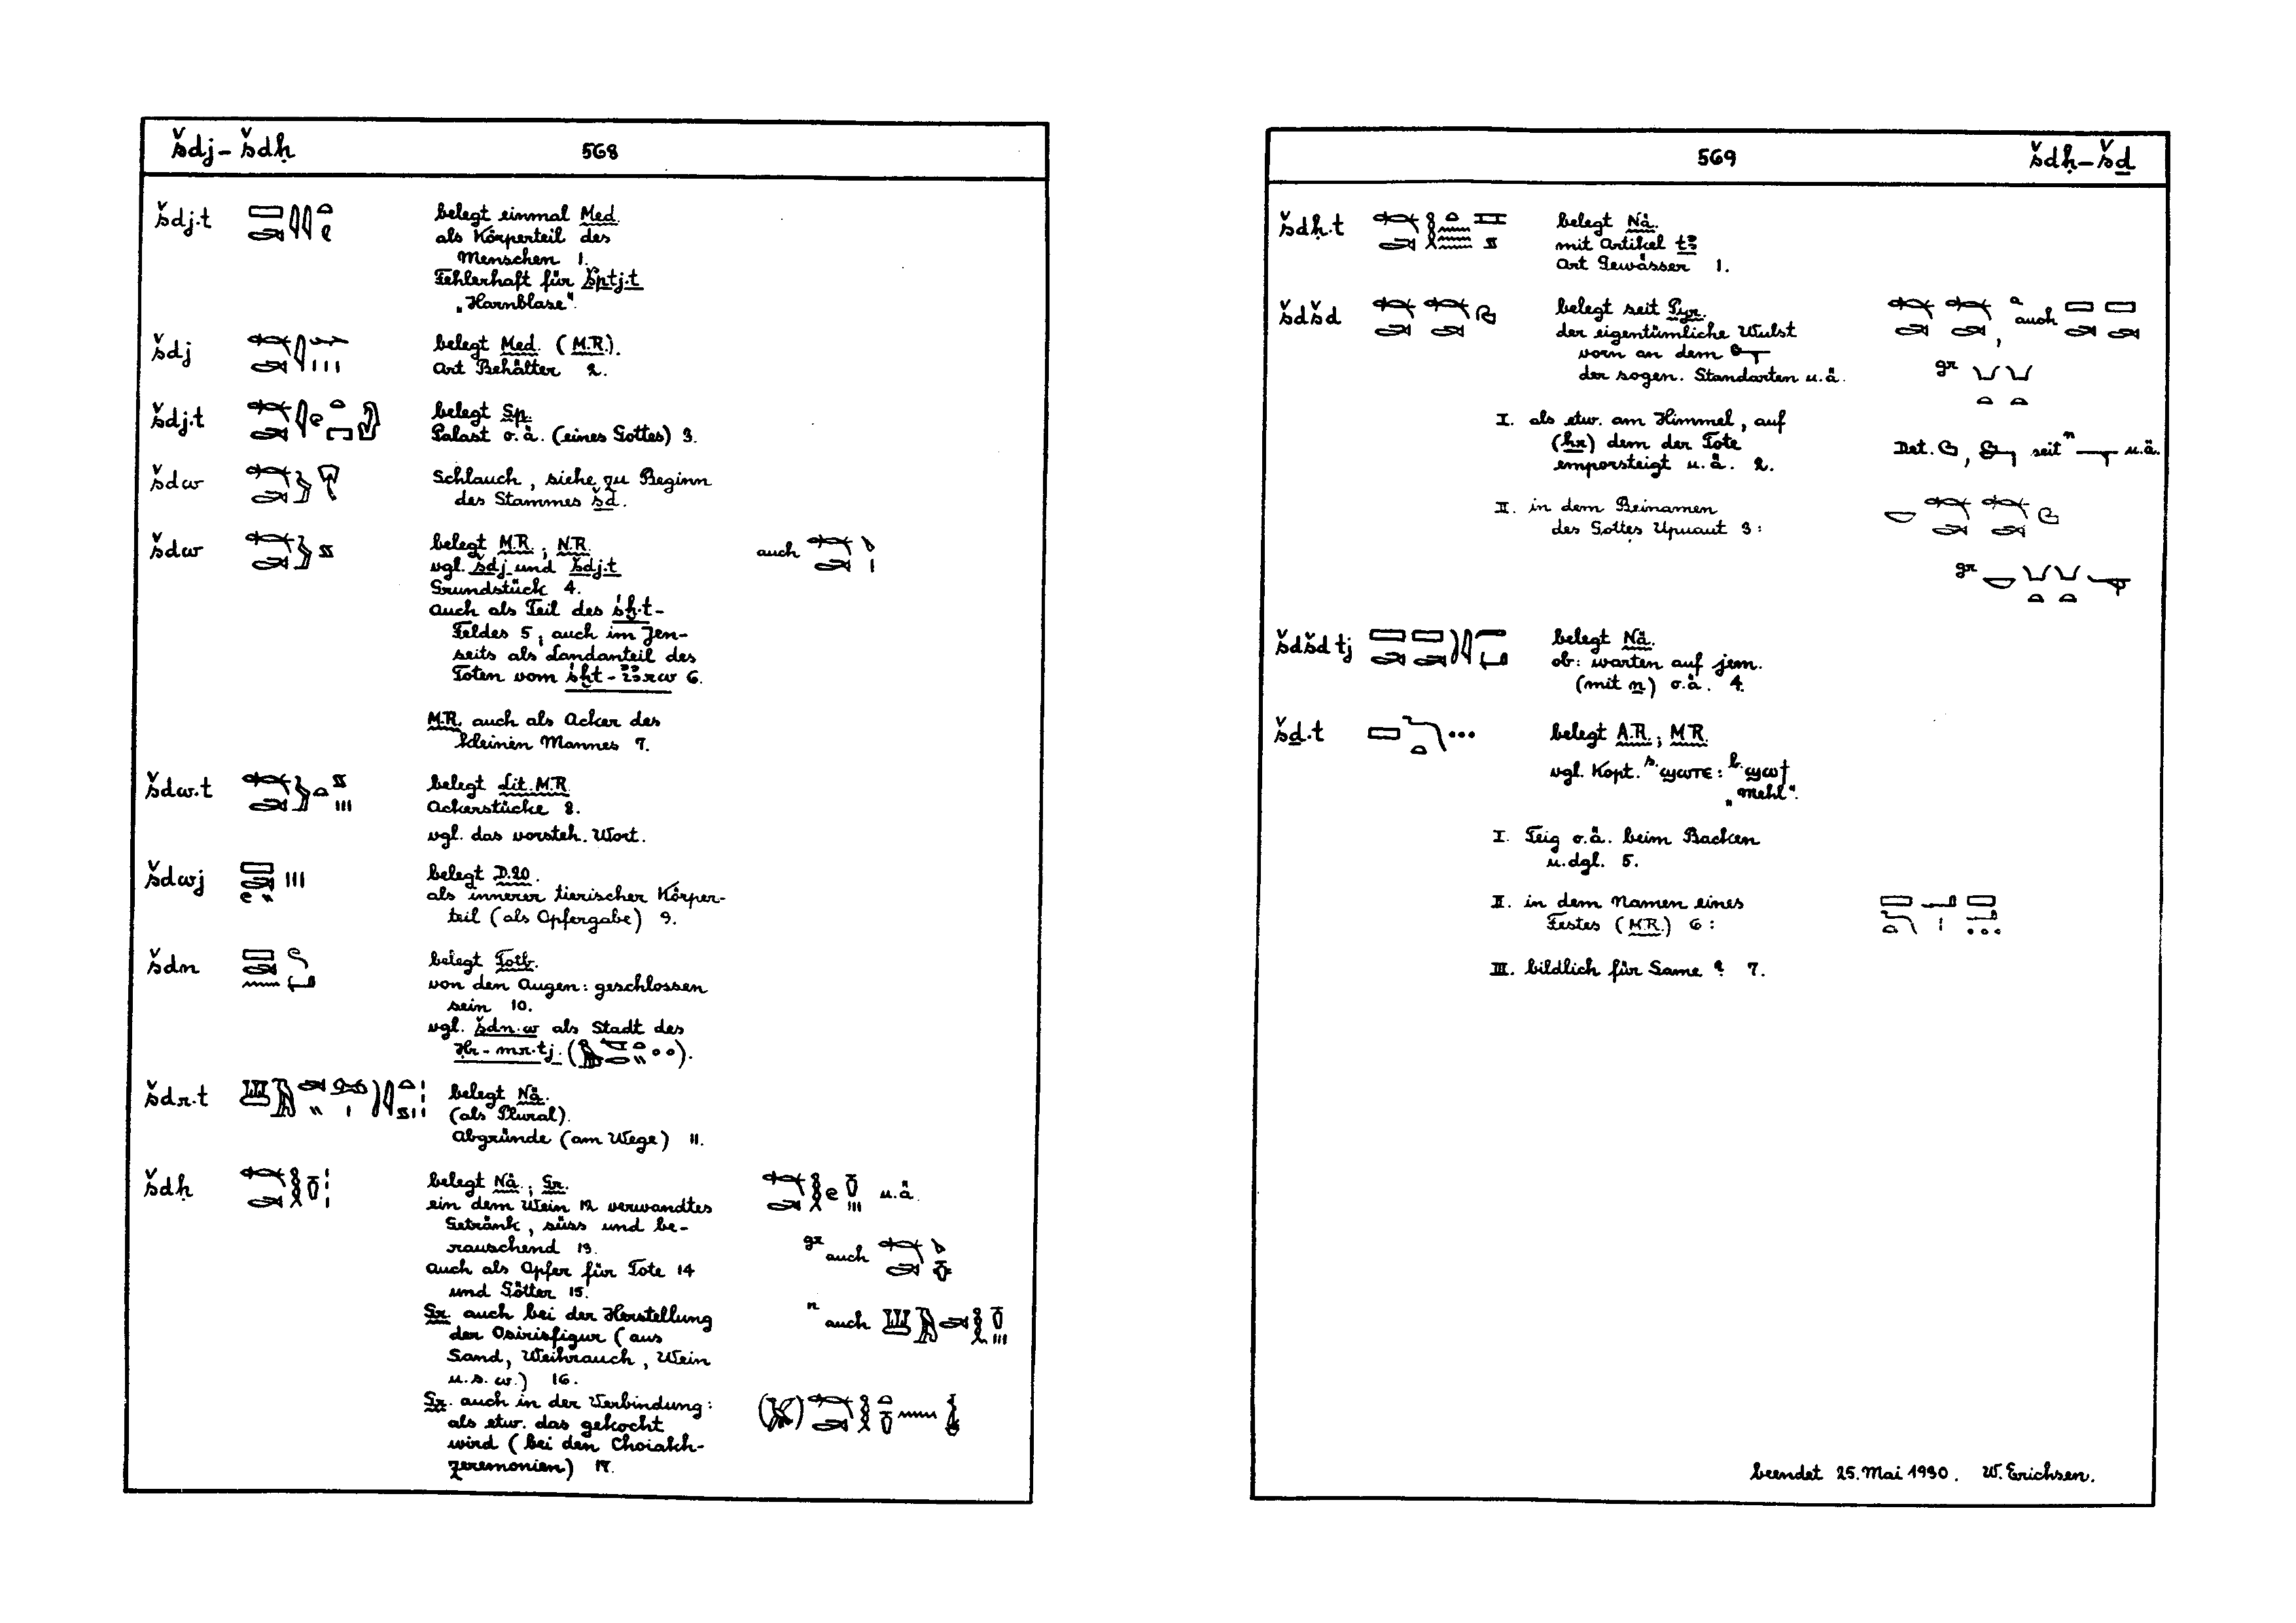 šdj – šdḥ 568
šdj.t belegt einmal Med.
als Körperteil des
Menschen 1.
Fehlerhaft für šptj.t
„Harnblase“.
šdj belegt Med. (M.R.).
Art Behälter 2.
šdj.t belegt Sp.
Palast o.ä. (eines Gottes) 3.
šdw Schlauch, siehe zu Beginn
des Stammes šd.
šdw belegt M.R.; N.R. auch
vgl. šdj und šdj.t
Grundstück 4.
Auch als Teil des
Feldes 5; auch im Jen-
seits als Landanteil des
Toten vom 6.
M.R. auch als Acker des
kleinen Mannes 7.
šdw.t belegt Lit. M.R.
Ackerstücke 8.
vgl. das vorsteh. Wort.
šdwj belegt D.20.
als innerer tierischer Körper-
teil (als Opfergabe) 9.
šdn belegt Totb.
von den Augen: geschlossen
sein 10.
vgl. šdn.w als Stadt des
Ḥr-mr.tj ( ).
šdr.t belegt Nä.
(als Plural).
Abgründe (am Wege) 11.
šdḥ belegt Nä.; Gr. u.ä.
ein dem Wein 12 verwandtes
Getränk, süss und be-
rauschend 13. gr auch
Auch als Opfer für Tote 14
und Götter 15.
Gr. auch bei der Herstellung n auch
der Osirisfigur (aus
Sand, Weihrauch, Wein
u.s.w.) 16.
Gr. auch in der Verbindung:
als etw. das gekocht
wird (bei den Choiakh-
zeremonien) 17.
569 šdḥ – šḏ
šdḥ.t belegt Nä.
mit Artikel tꜣ
Art Gewässer 1.
šdšd belegt seit Pyr. a auch
der eigentümliche Wulst
vorn an dem
der sogen. Standarten u.ä. gr
I. als etw. am Himmel, auf
(ḥr) dem der Tote Det. , seit n u.ä.
emporsteigt u.ä. 2.
II. in dem Beinamen
des Gottes Upuaut 3:
gr
šdšdtj belegt Nä.
ob: warten auf jem.
(mit n) o.ä. 4.
šḏ.t belegt A.R.; M.R.
vgl. Kopt. s. ϣⲱⲧⲉ : b. ϣⲱϯ
„Mehl“.
I. Teig o.ä. beim Backen
u.dgl. 5.
II. in dem Namen eines
Festes (M.R.) 6:
III. bildlich für Same ? 7.
beendet 25. Mai 1930. W. Erichsen.